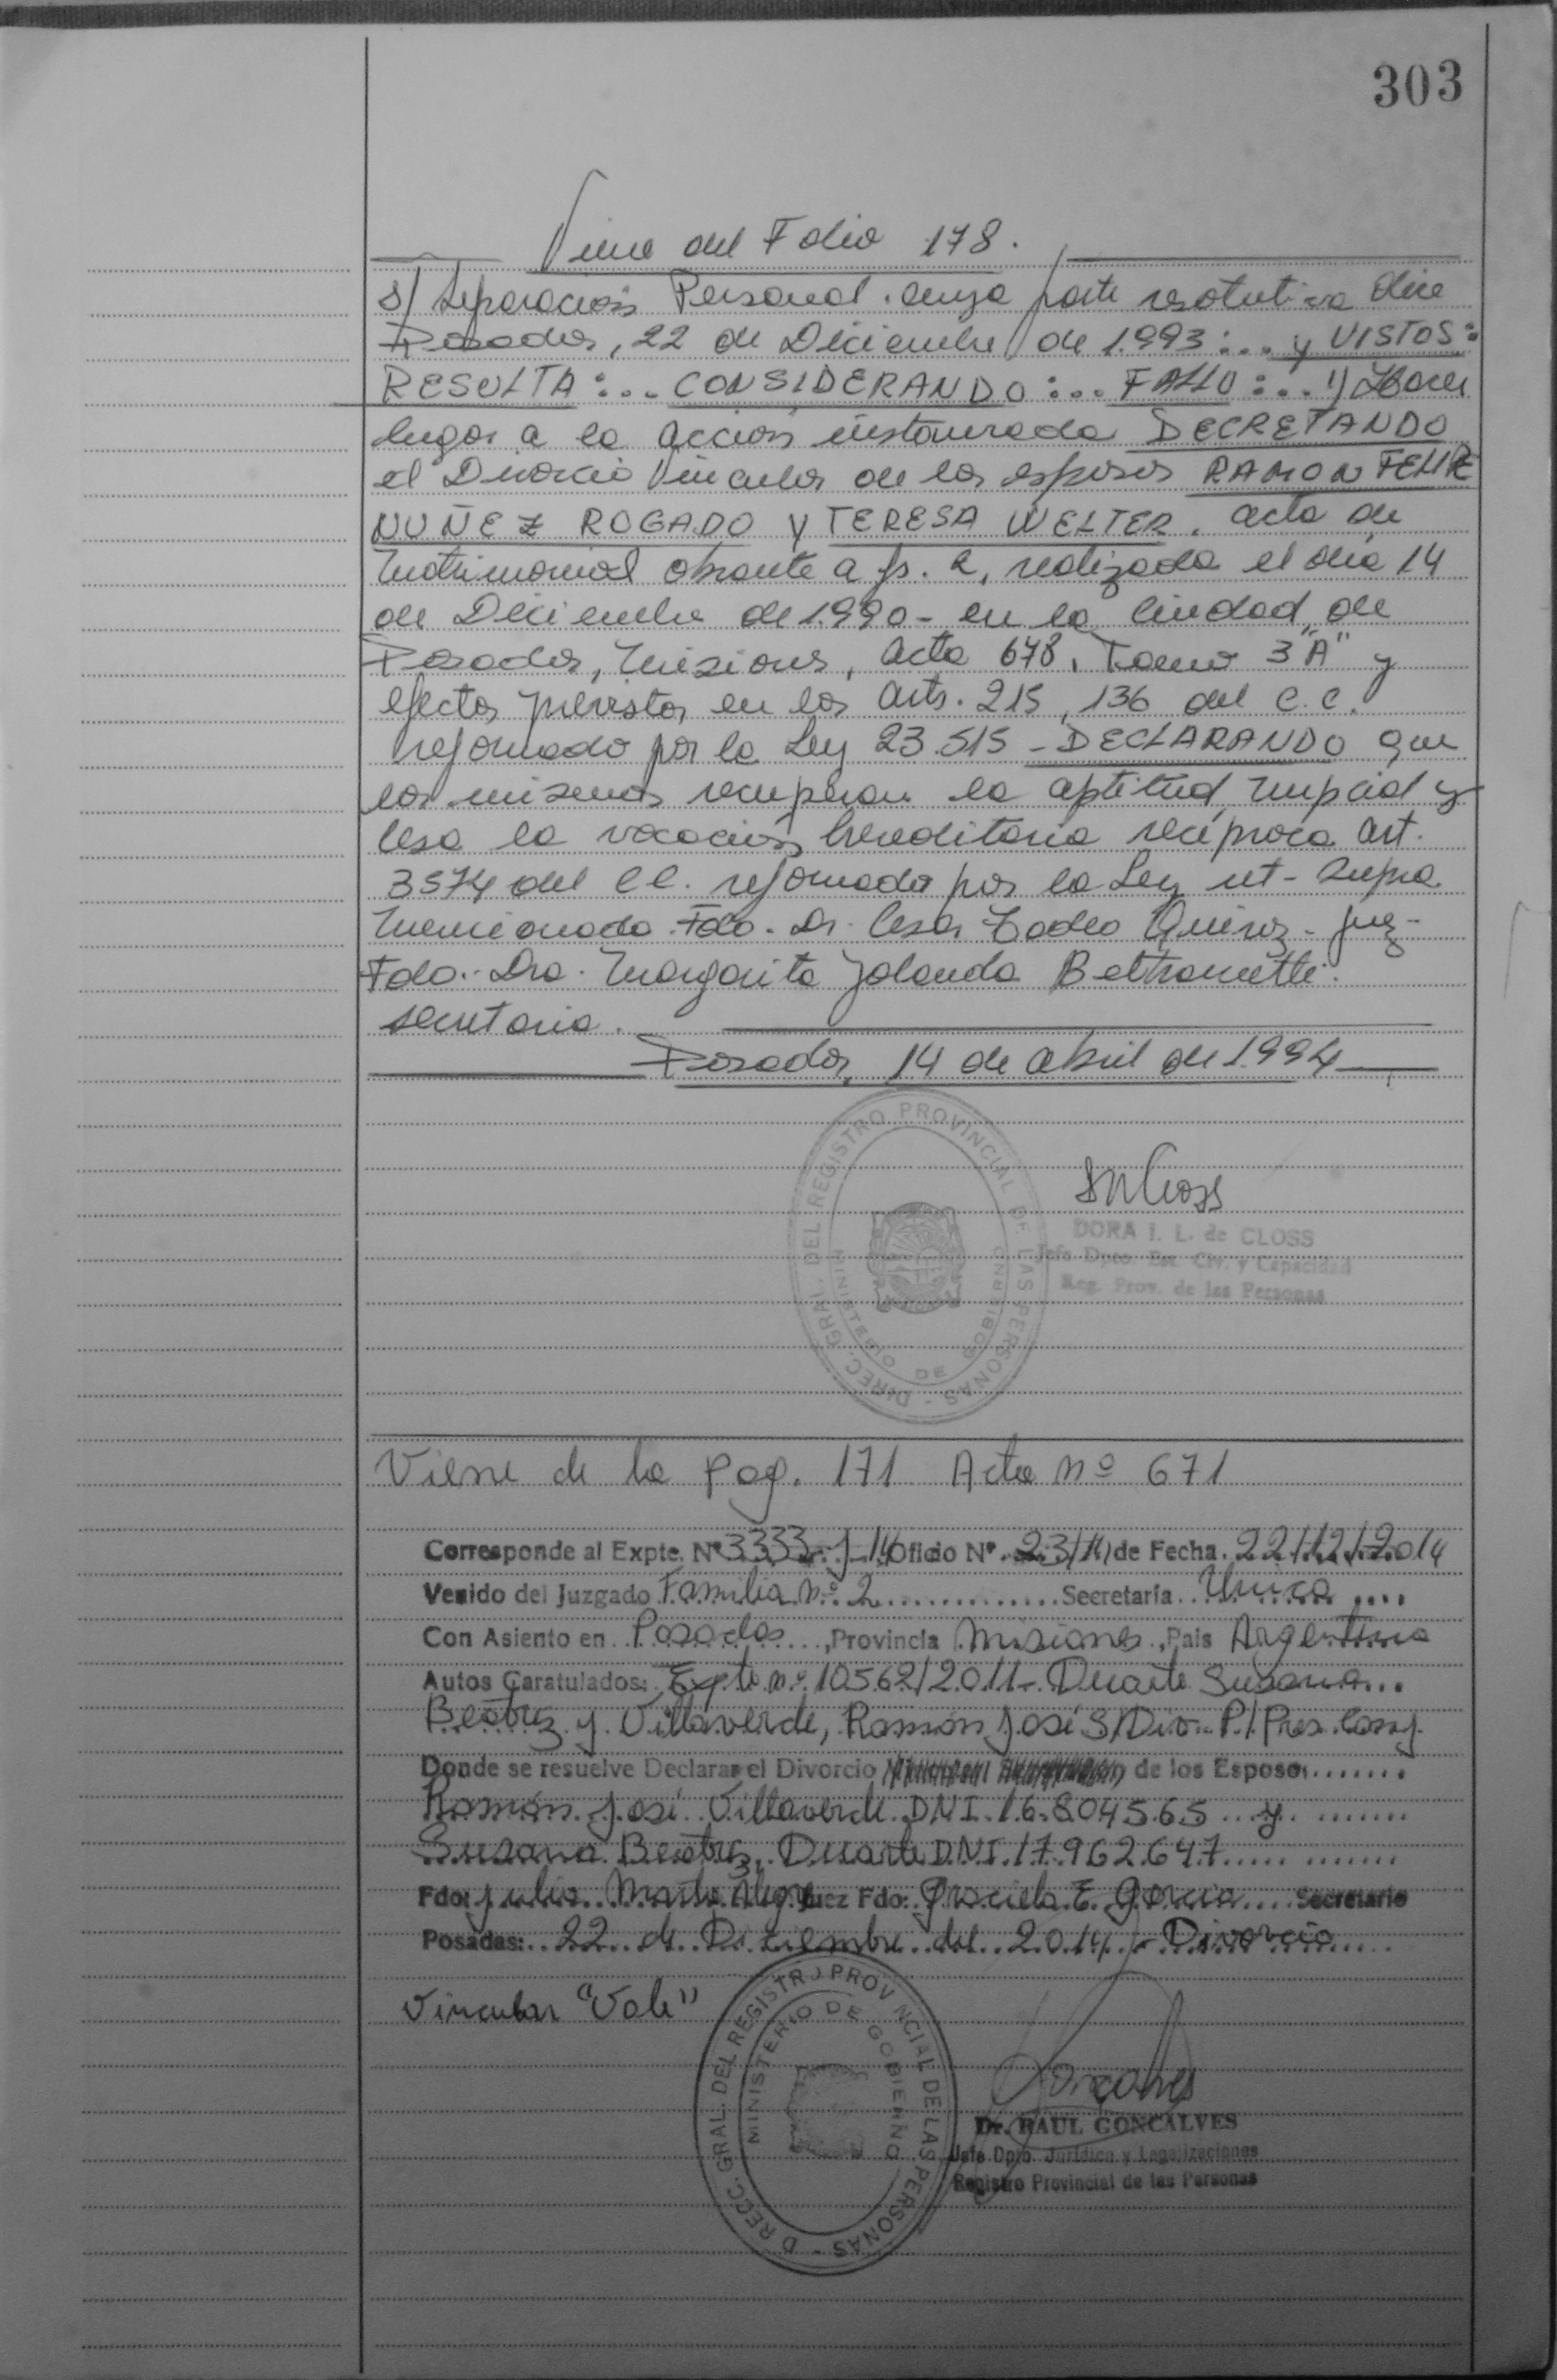 303
Viene del Folio 178.
S/ Separación Personal. cuya parte resolutiva dice
Posadas, 22 de Diciembre de 1.993:... y VISTOS:
RESULTA:... CONSIDERANDO:... FALLO:... 1) Hacer
lugar a la acción instaurada DECRETANDO
el Divorcio Vincular de los esposos RAMON FELIPE
NUÑEZ ROGADO y TERESA WELTER. acta de
Matrimonial obrante a fs. 2, realizada el día 14
de Diciembre de 1.990- en la Ciudad, de
Posadas, Misiones, Acta 678, Tomo 3"A" y
efectos previstos en los Arts. 215, 136 del C.C.
reformado por la Ley 23.515 - DECLARANDO que
los mismos recuperan la aptitud nupcial y
cesa la vocación hereditaria recíproca Art.
3574 del CC. reformado por la Ley ut- supra
mencionada. Fdo. Dr. Cesar Tadeo Quiroz - Juez-
Fdo.- Dra. Margarita Yolanda Beltrametti.
secretaria.
Posadas, 14 de abril de 1.994
DIREC. GRAL. DEL REGISTRO PROVINCIAL DE LAS PERSONAS -
MINISTERIO DE GOBIERNO
DORA I. L. de CLOSS
Jefe Dpto. Est. Civ. y Capacidad
Reg. Prov. de las Personas
Viene de la Pag. 171 Acta Nº 671
Corresponde al Expte. Nº 3333-J-14 Oficio Nº 23/14 de Fecha 22/12/2014
Venido del Juzgado Familia Nº 2 Secretaría Unica
Con Asiento en Posadas, Provincia Misiones, Pais Argentina
Autos Caratulados: Expte nº 10562/2011- Duarte Susana
Beatriz y Villaverde, Ramón José S/Div. P/ Pres. Conj.
Donde se resuelve Declarar el Divorcio de los Esposo
Ramón José Villaverde DNI 16.804565 y
Susana Beatriz Duarte DNI 17962647
Fdo: Julio Marte Alegre Juez Fdo: Graciela E. Garcia Secretario
Posadas: 22 de Diziembre del 2014 - Divorcio
Vincular "Vale"
DIRECC. GRAL. DEL REGISTRO PROVINCIAL DE LAS PERSONAS -
MINISTERIO DE GOBIERNO
Dr. RAUL GONCALVES
Jefe Dpto. Jurídico y Legalizaciones
Registro Provincial de las Personas